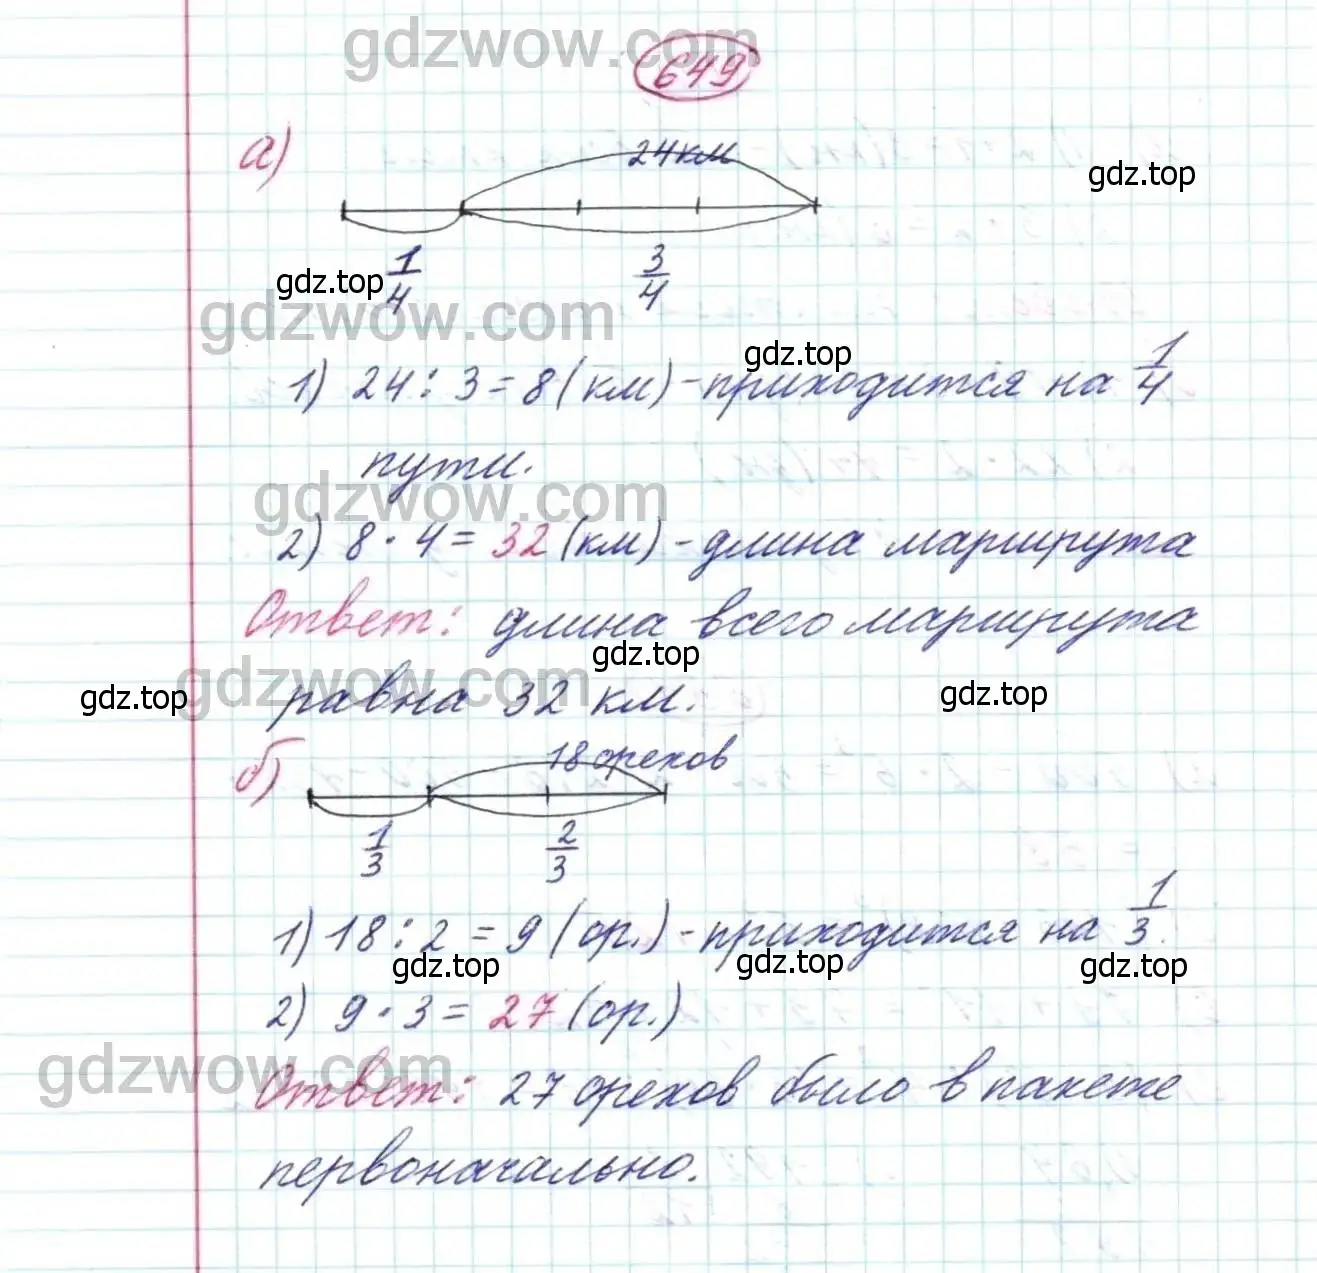 gdzwow.com
649
а)
24км
gdz.top
1/4
3/4
gdz.top
gdzwow.com
gdz.top
1) 24 : 3 = 8 (км) - приходится на 1/4
пути.
gdzwow.com
2) 8 · 4 = 32 (км) - длина маршрута
Ответ: длина всего маршрута
gdz.top
gdzwow.com
gdz.top
gdz.top
равна 32 км.
б)
18 орехов
1/3
2/3
1) 18 : 2 = 9 (ор.) - приходится на 1/3.
gdz.top
gdz.top
gdz.top
2) 9 · 3 = 27 (ор.)
gdzwow.com
Ответ: 27 орехов было в пакете
первоначально.